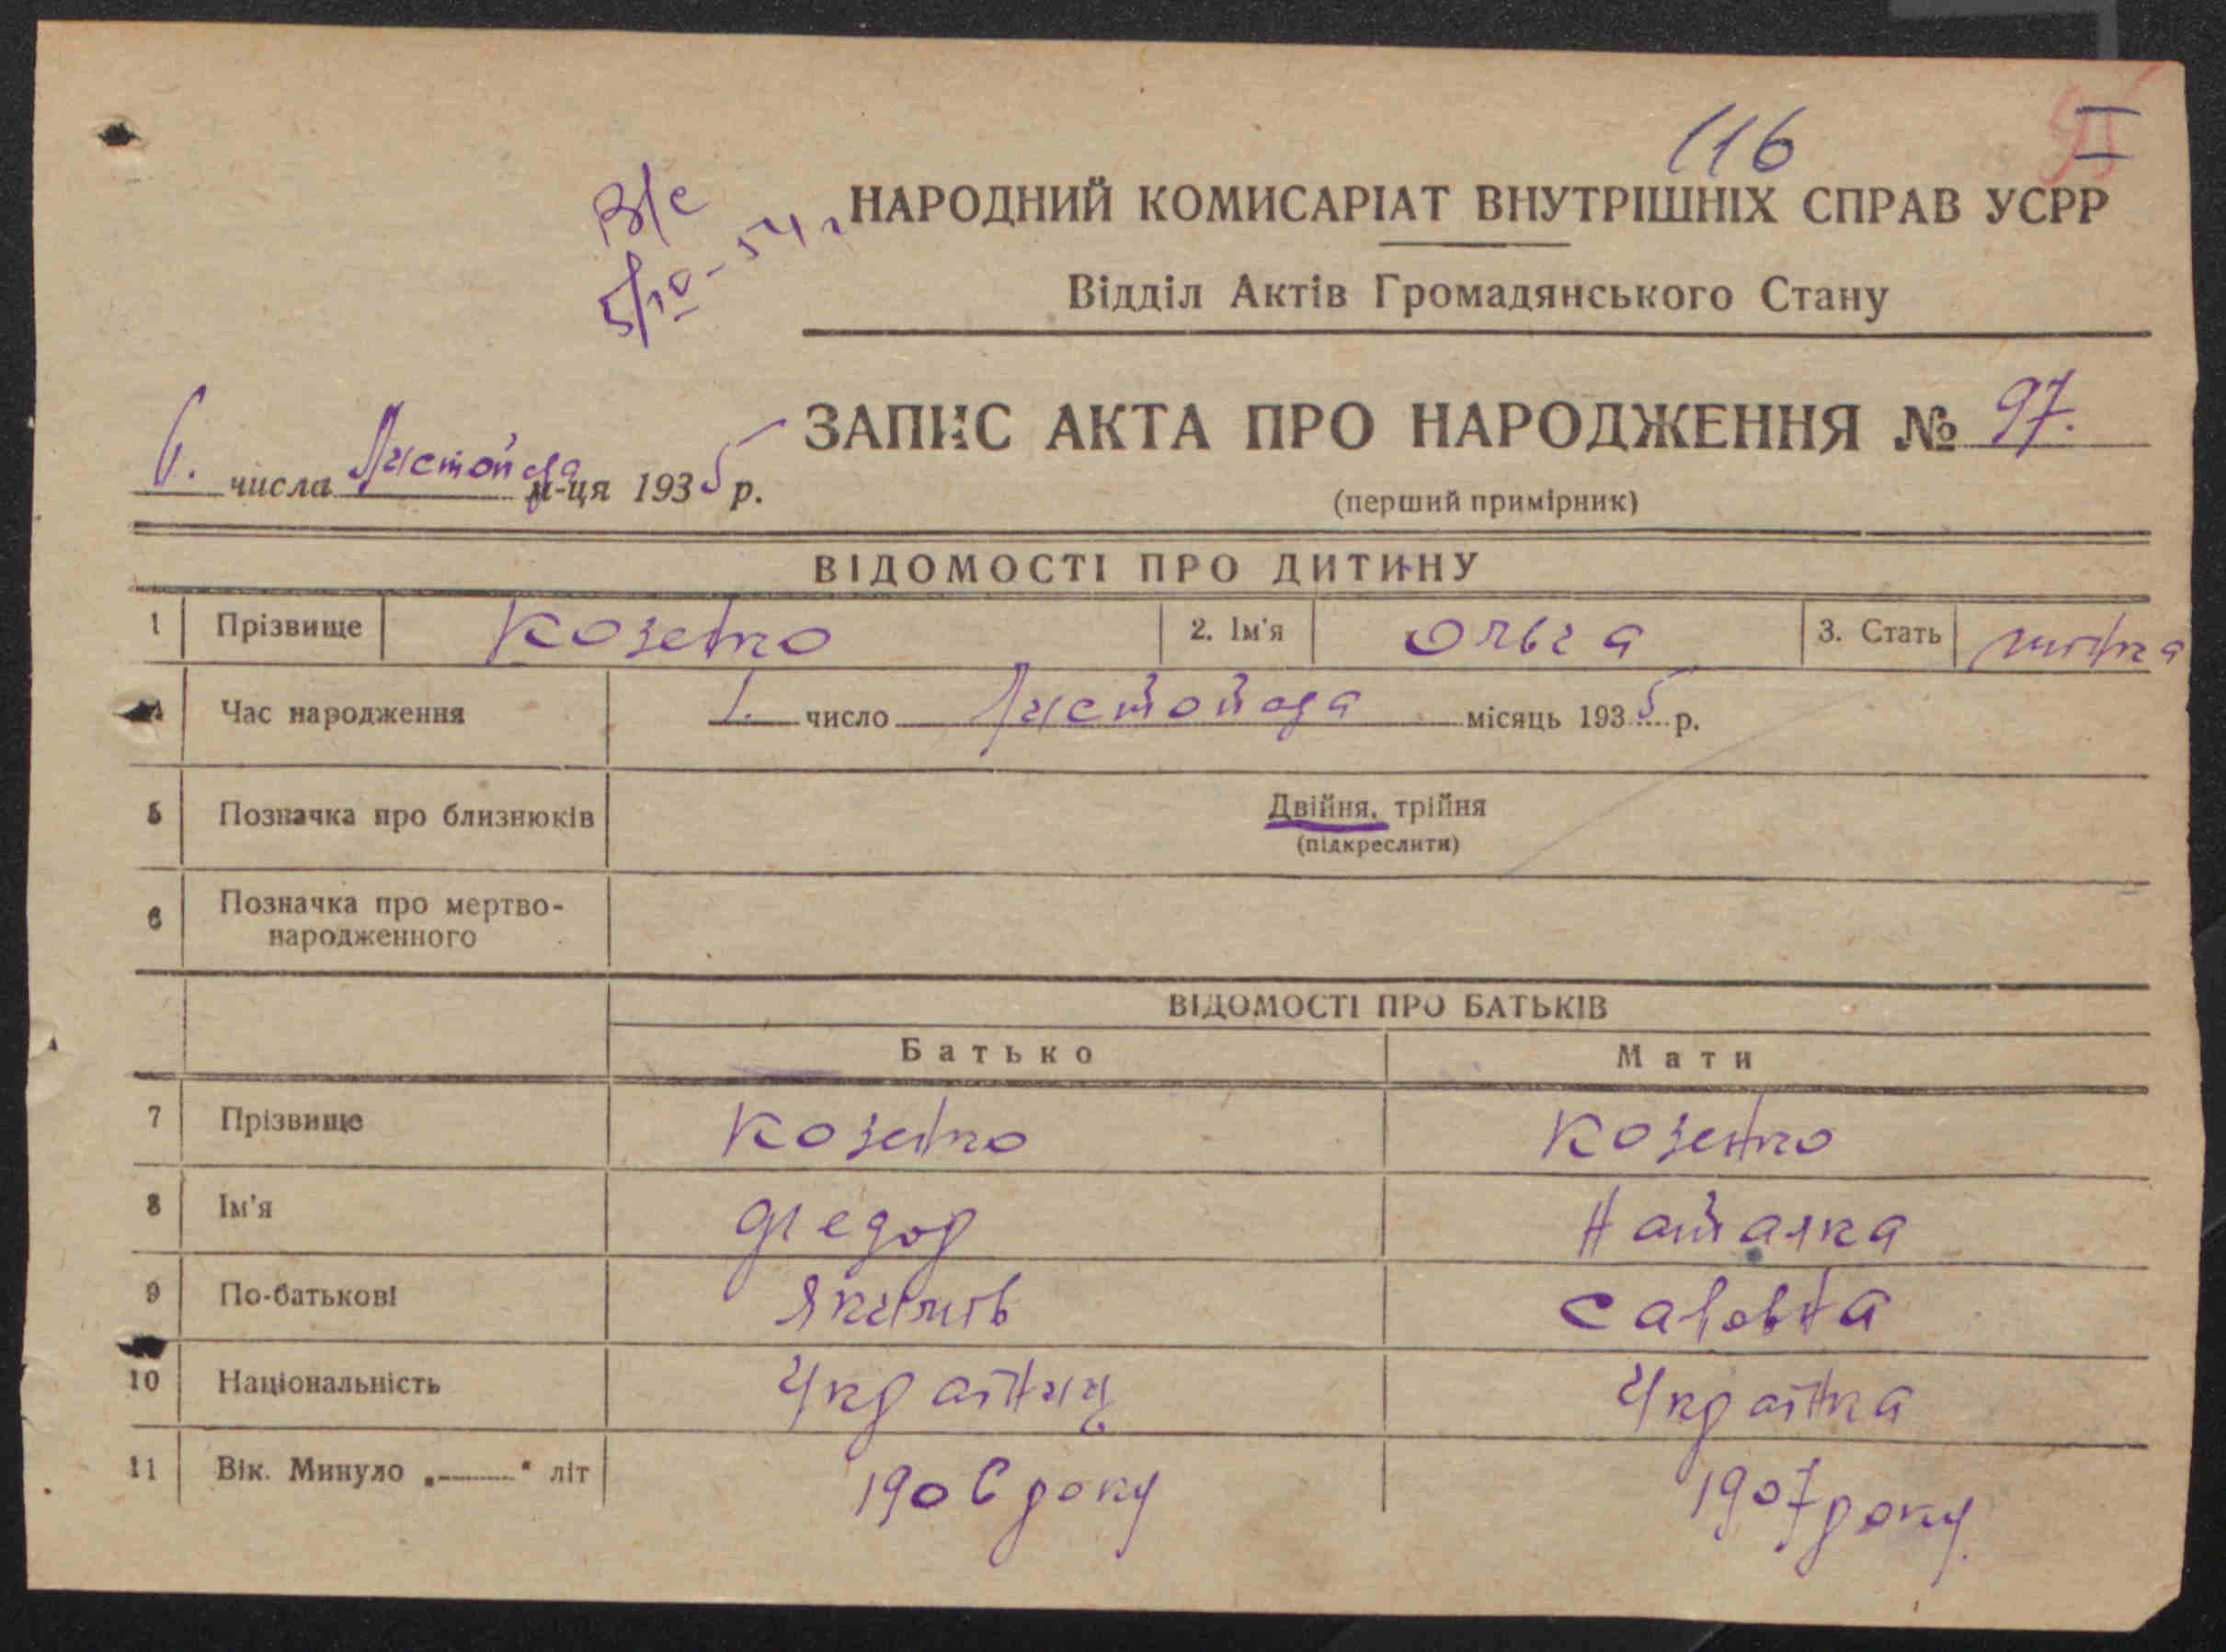 116
В/с
5/IV-54 г
НАРОДНИЙ КОМИСАРІАТ ВНУТРІШНІХ СПРАВ УСРР
Відділ Актів Громадянського Стану
ЗАПИС АКТА ПРО НАРОДЖЕННЯ № 97.
6. числа Листопада м-ця 1935 р.
(перший примірник)
ВІДОМОСТІ ПРО ДИТИНУ
1 Прізвище Козенко 2. Ім'я Ольга 3. Стать жінка
Час народження 1. число Листопада місяць 1935 р.
5 Позначка про близнюків Двійня, трійня
(підкреслити)
6 Позначка про мертво-
народженного
ВІДОМОСТІ ПРО БАТЬКІВ
Батько Мати
7 Прізвище Козенко Козенко
8 Ім'я Федор Наталка
9 По-батькові Якимів Савовна
10 Національність Українець Українка
11 Вік. Минуло „ “ літ 1906 року 1907 року.